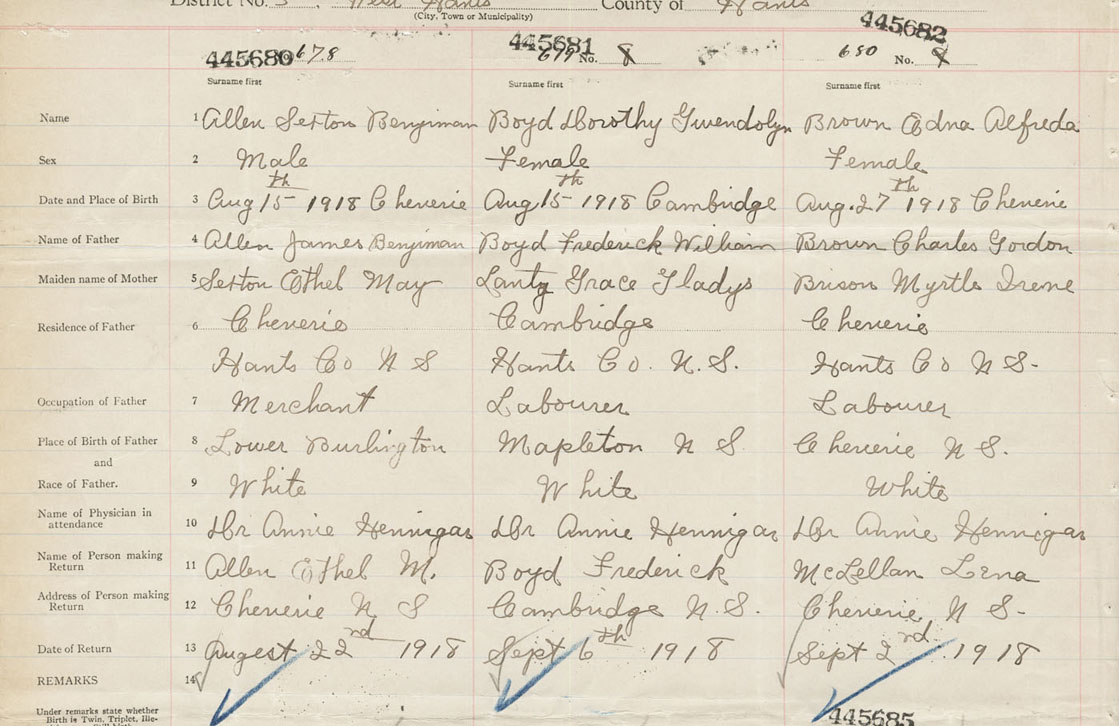 District No. 3, West Hants County of Hants
(City, Town or Municipality)
445680 678 445681 679 No. 8 445682 680 No. 9
Surname first Surname first Surname first
Name 1 Allen Sexton Benjiman Boyd Dorothy Gwendolyn Brown Edna Alfreda
Sex 2 Male Female Female
Date and Place of Birth 3 Aug 15th 1918 Cheverie Aug 15th 1918 Cambridge Aug. 27th 1918 Cheverie
Name of Father 4 Allen James Benjiman Boyd Frederick William Brown Charles Gordon
Maiden name of Mother 5 Sexton Ethel May Lantz Grace Gladys Brison Myrtle Irene
Residence of Father 6 Cheverie Cambridge Cheverie
Hants Co N S Hants Co. N.S. Hants Co N S.
Occupation of Father 7 Merchant Labourer Labourer
Place of Birth of Father 8 Lower Burlington Mapleton N S. Cheverie N S.
and
Race of Father. 9 White White White
Name of Physician in
attendance 10 Dr Annie Hennigar Dr Annie Hennigar Dr Annie Hennigar
Name of Person making
Return 11 Allen Ethel M. Boyd Frederick McLellan Lena
Address of Person making
Return 12 Cheverie N S Cambridge N.S. Cheverie N S.
Date of Return 13 Augest 22nd 1918 Sept 6th 1918 Sept 2nd. 1918
REMARKS 14
445685
Under remarks state whether
Birth is Twin, Triplet, Ille-